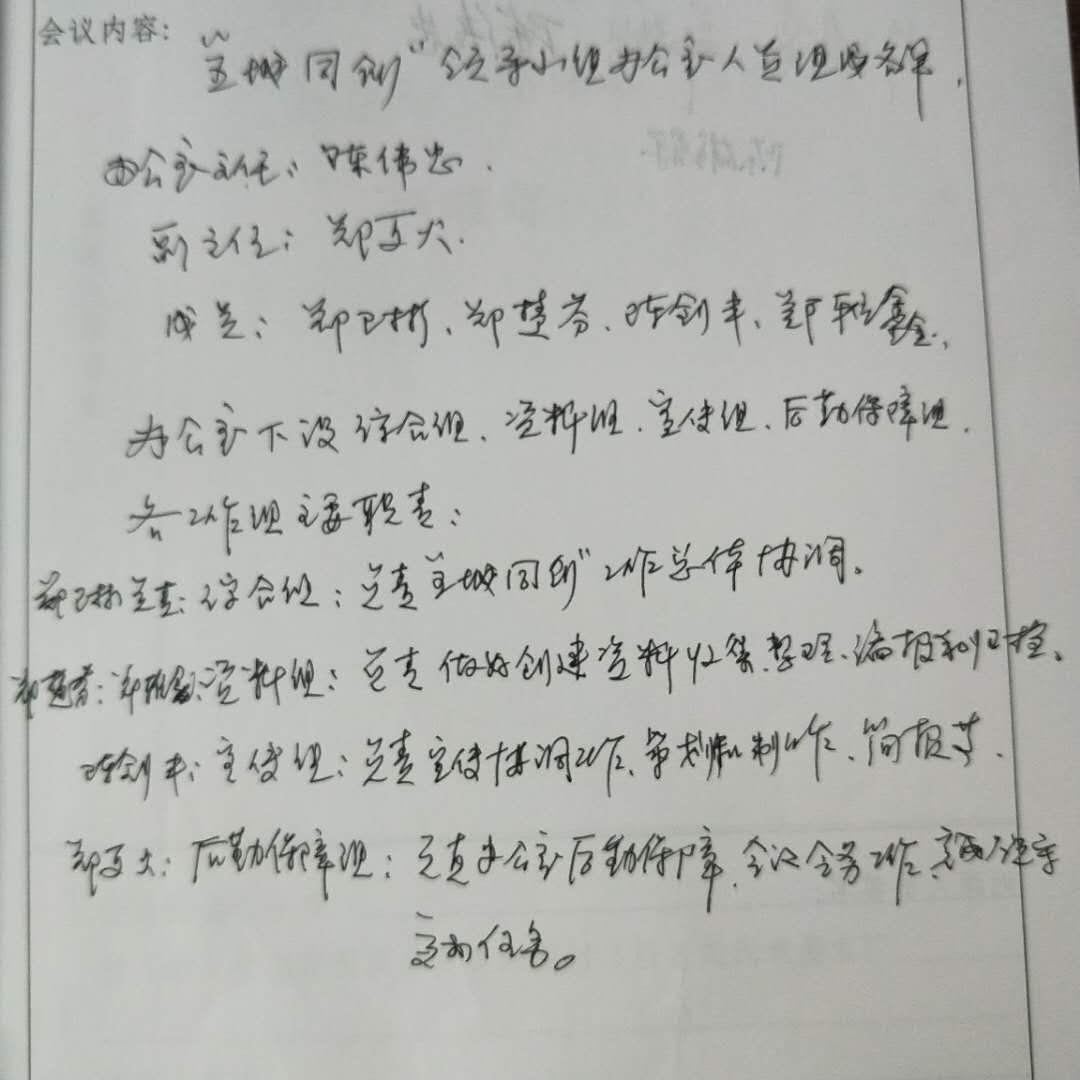 会议内容:
"三城同创"领导小组办公室人员组成名单,
办公室主任:陈伟忠.
副主任:郑亚大.
成员:郑卫彬、郑楚芬、陈创丰、郑联鑫.
办公室下设综合组、资料组、宣传组、后勤保障组.
各工作组主要职责:
郑卫彬负责:综合组:负责"三城同创"工作总体协调。
郑楚芬:资料组:负责做好创建资料收集、整理、编报和归档。
陈创丰:宣传组:负责宣传协调工作、策划和制作、简报等.
郑亚大:后勤保障组:负责办公室后勤保障、会议会务工作,完成领导
交办任务。